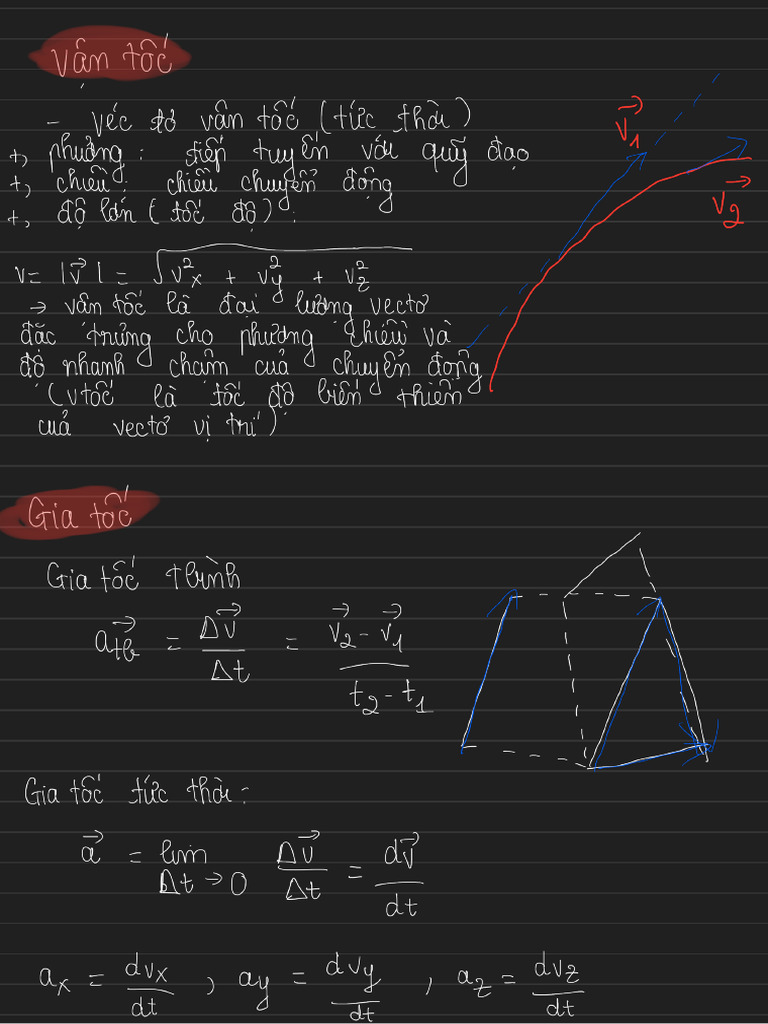 Vận tốc
- Véc tơ vận tốc (tức thời)
+, phương : tiếp tuyến với quỹ đạo
+, chiều : chiều chuyển động
+, độ lớn ( tốc độ) :
v = |v⃗| = √(v²x + v²y + v²z)
→ vận tốc là đại lượng vectơ
đặc trưng cho phương chiều và
độ nhanh chậm của chuyển động
(vtốc là tốc độ biến thiên
của vectơ vị trí)
v⃗1
v⃗2
Gia tốc
Gia tốc tbình
a⃗tb = Δv⃗/Δt = (v⃗2 - v⃗1)/(t2 - t1)
Gia tốc tức thời :
a⃗ = lim Δt→0 Δv⃗/Δt = dv⃗/dt
ax = dvx/dt , ay = dvy/dt , az = dvz/dt